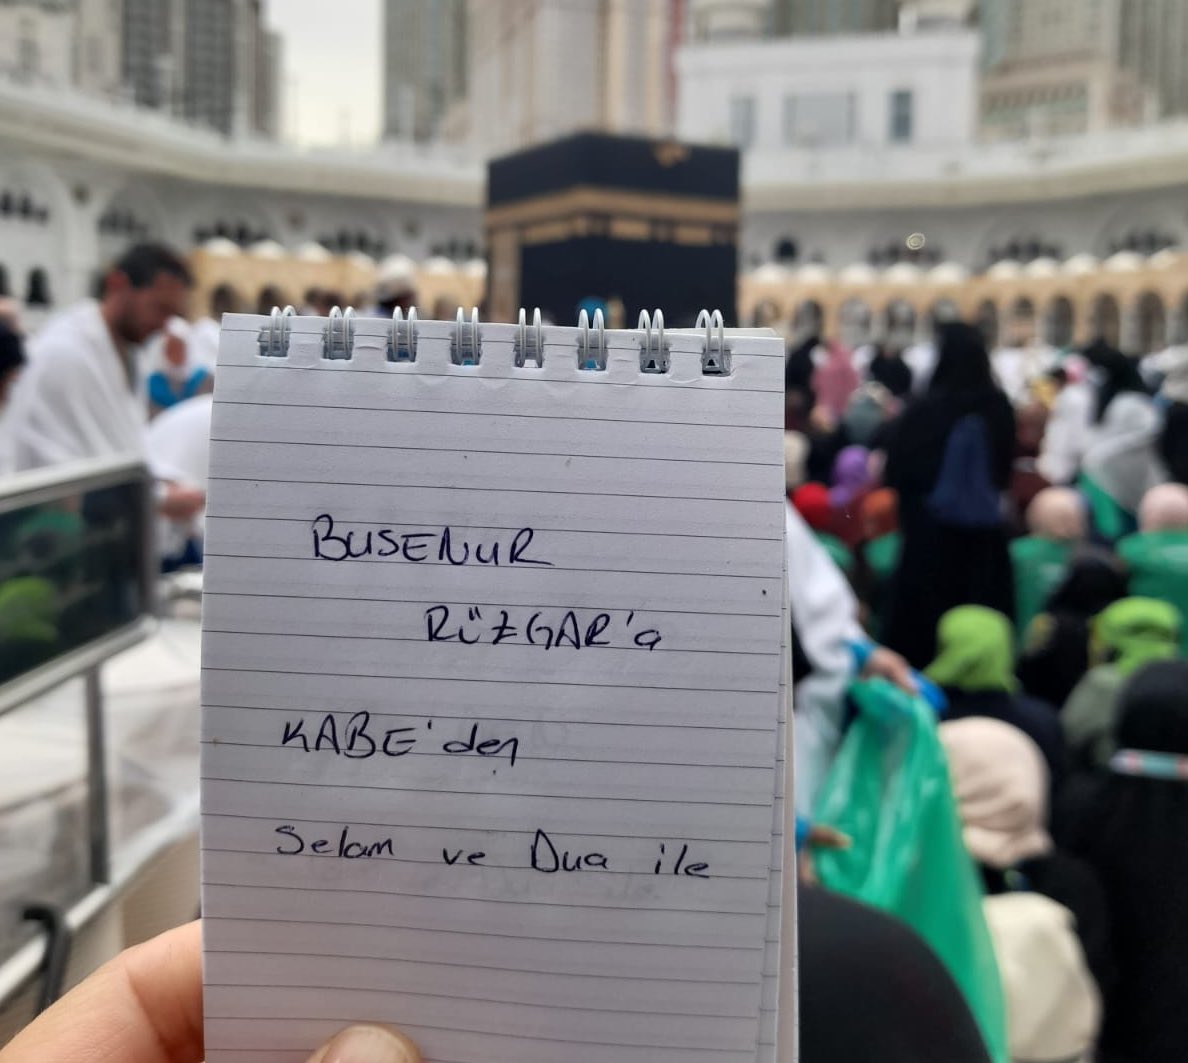 BUSENUR
RÜZGAR'a
KABE'den
Selam ve Dua ile